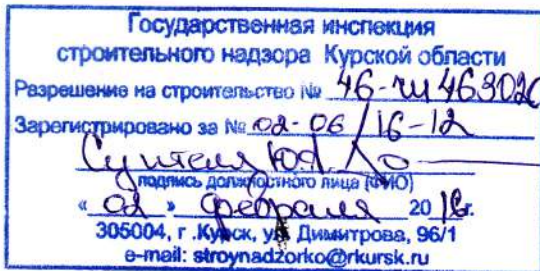 Государственная инспекция
строительного надзора Курской области
Разрешение на строительство № 46-ru 463020
Зарегистрировано за № 02-06/16-12
подпись должностного лица (ФИО)
« 02 » февраля 2016г.
305004, г .Курск, ул Димитрова, 96/1
e-mail: stroynadzorko@rkursk.ru